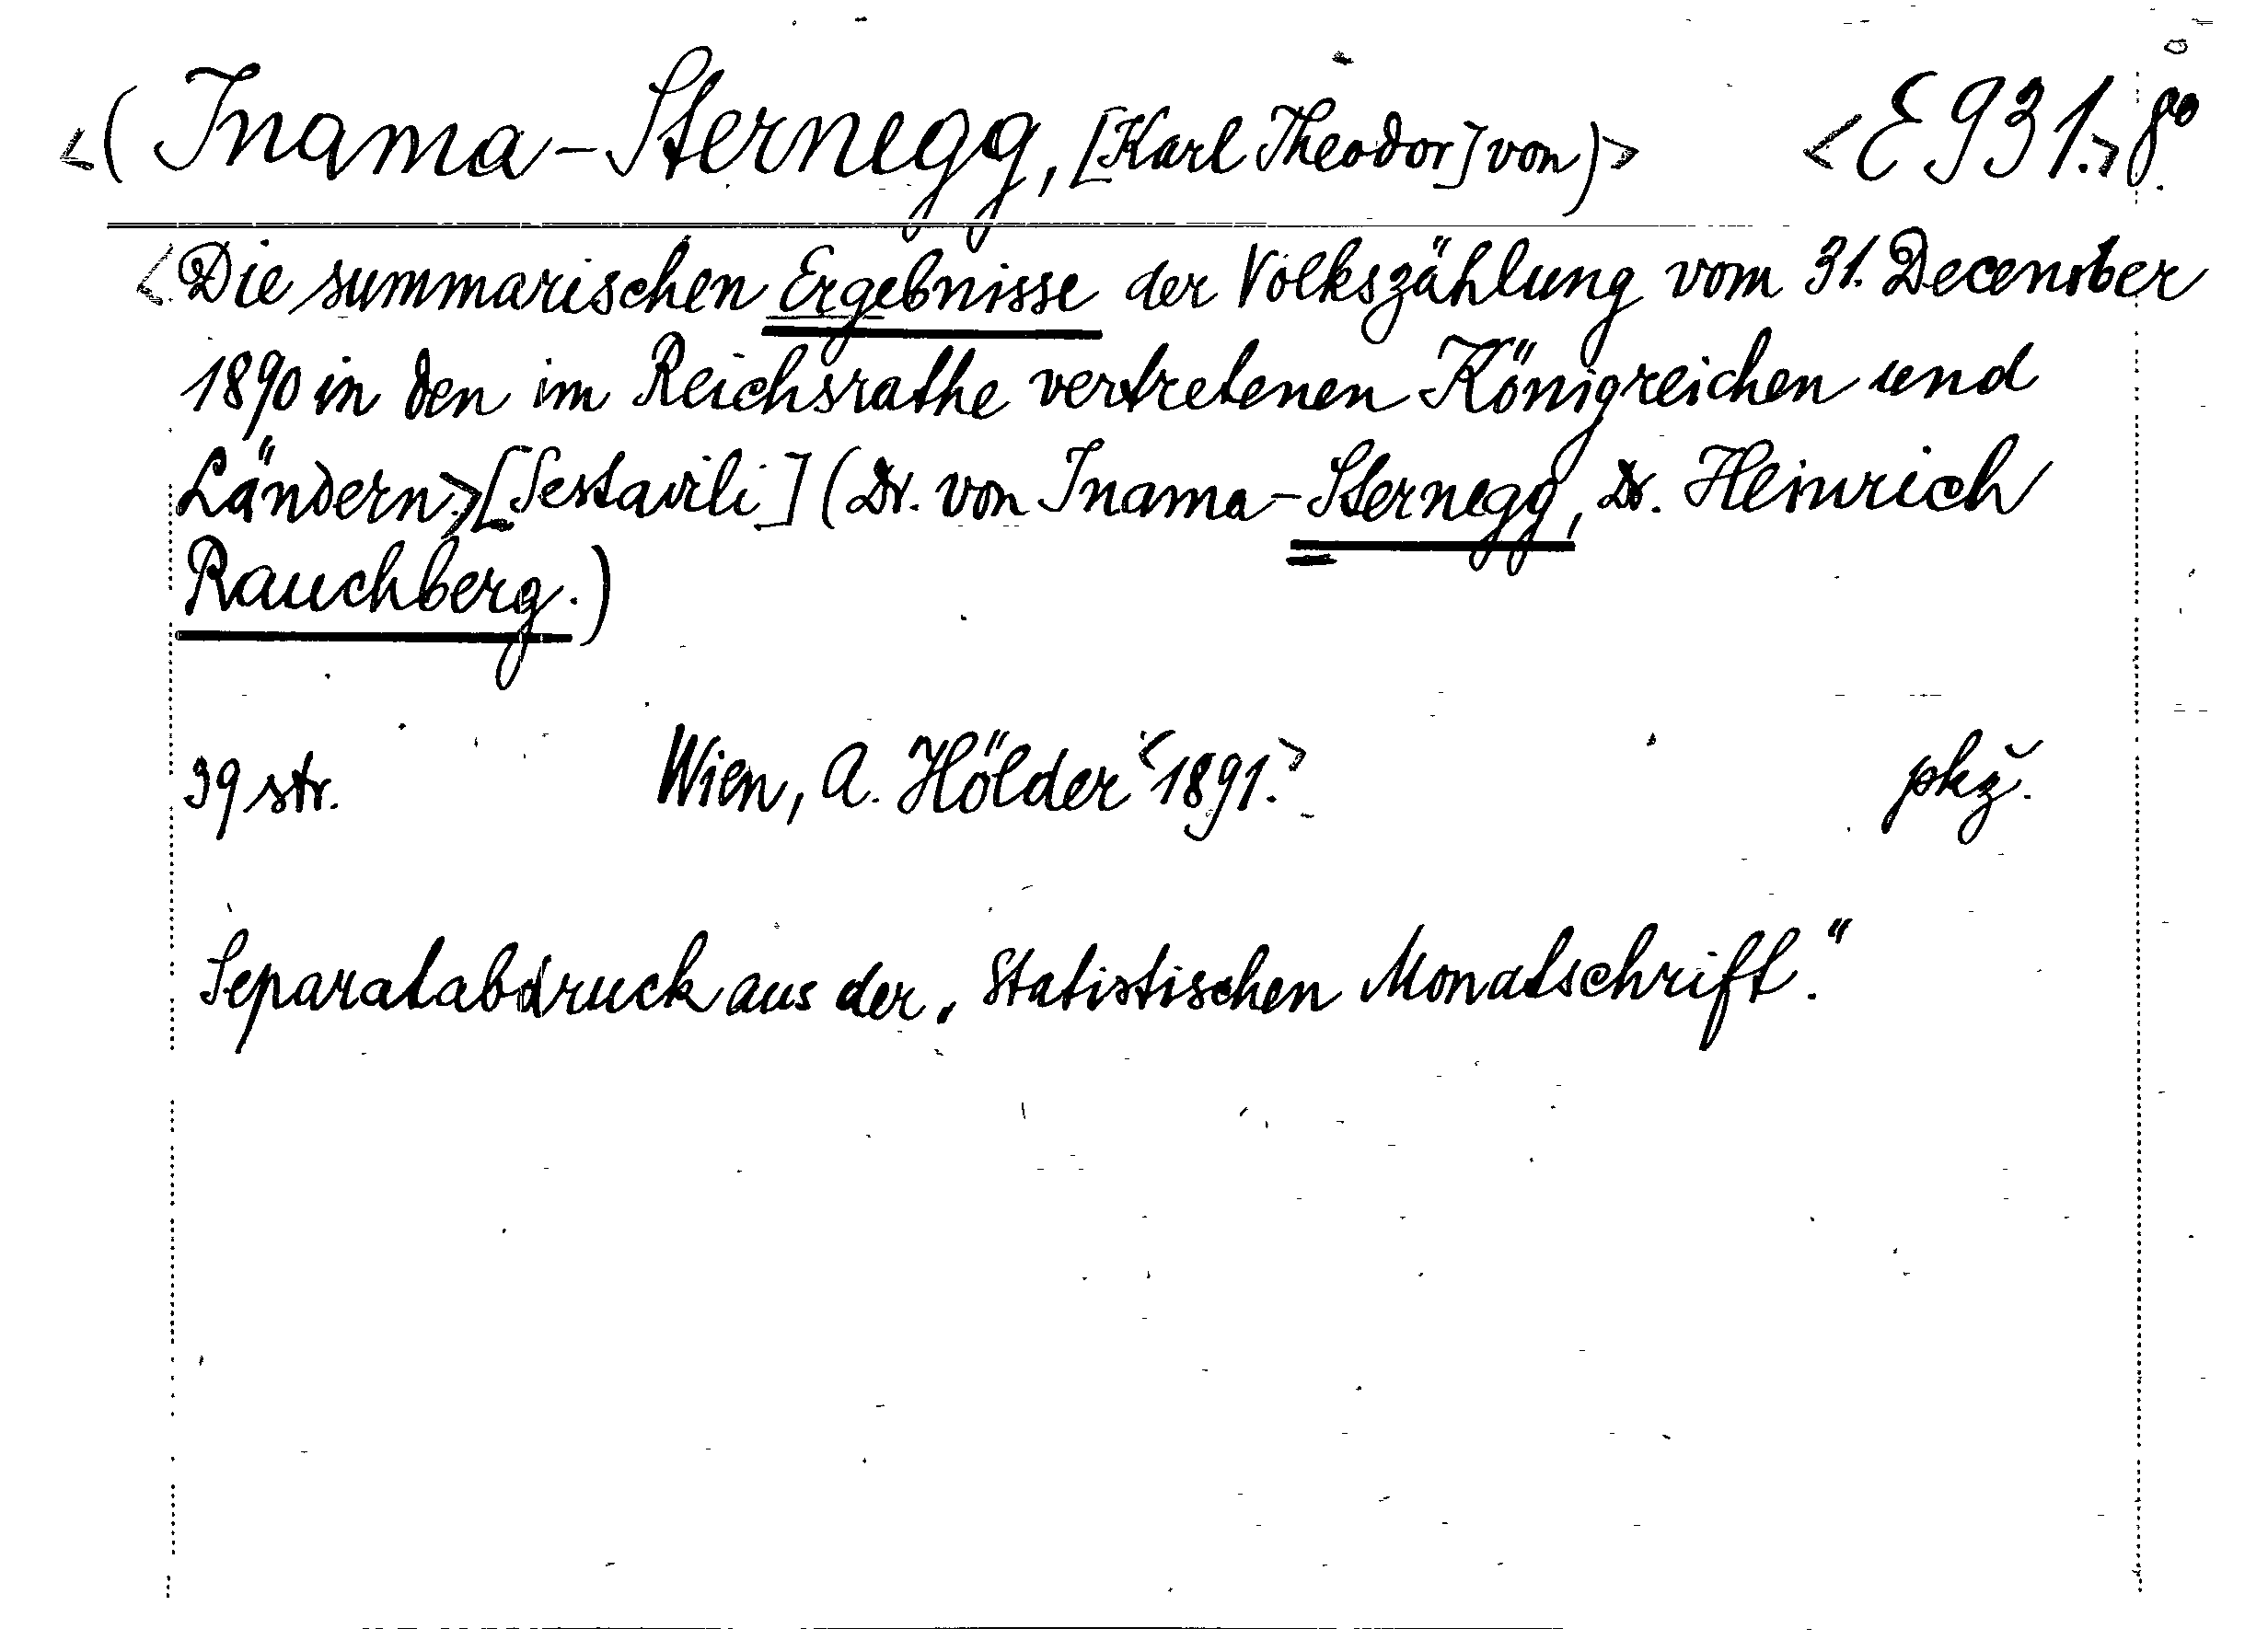 <(Inama-Sternegg, [Karl Theodor] von)> <E 931.> 8°
<Die summarischen Ergebnisse der Volkszählung vom 31. December
1890 in den im Reichsrathe vertretenen Königreichen und
Ländern.> [Sestavili] (Dr. von Inama-Sternegg, Dr. Heinrich
Rauchberg.)
39 str. Wien, A. Hölder <1891.> pkž.
Separatabdruck aus der „Statistischen Monatschrift."